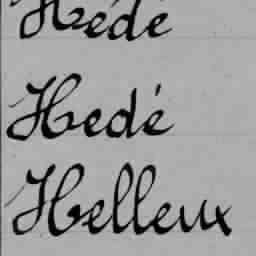 Hédé
Hedé
Helleux